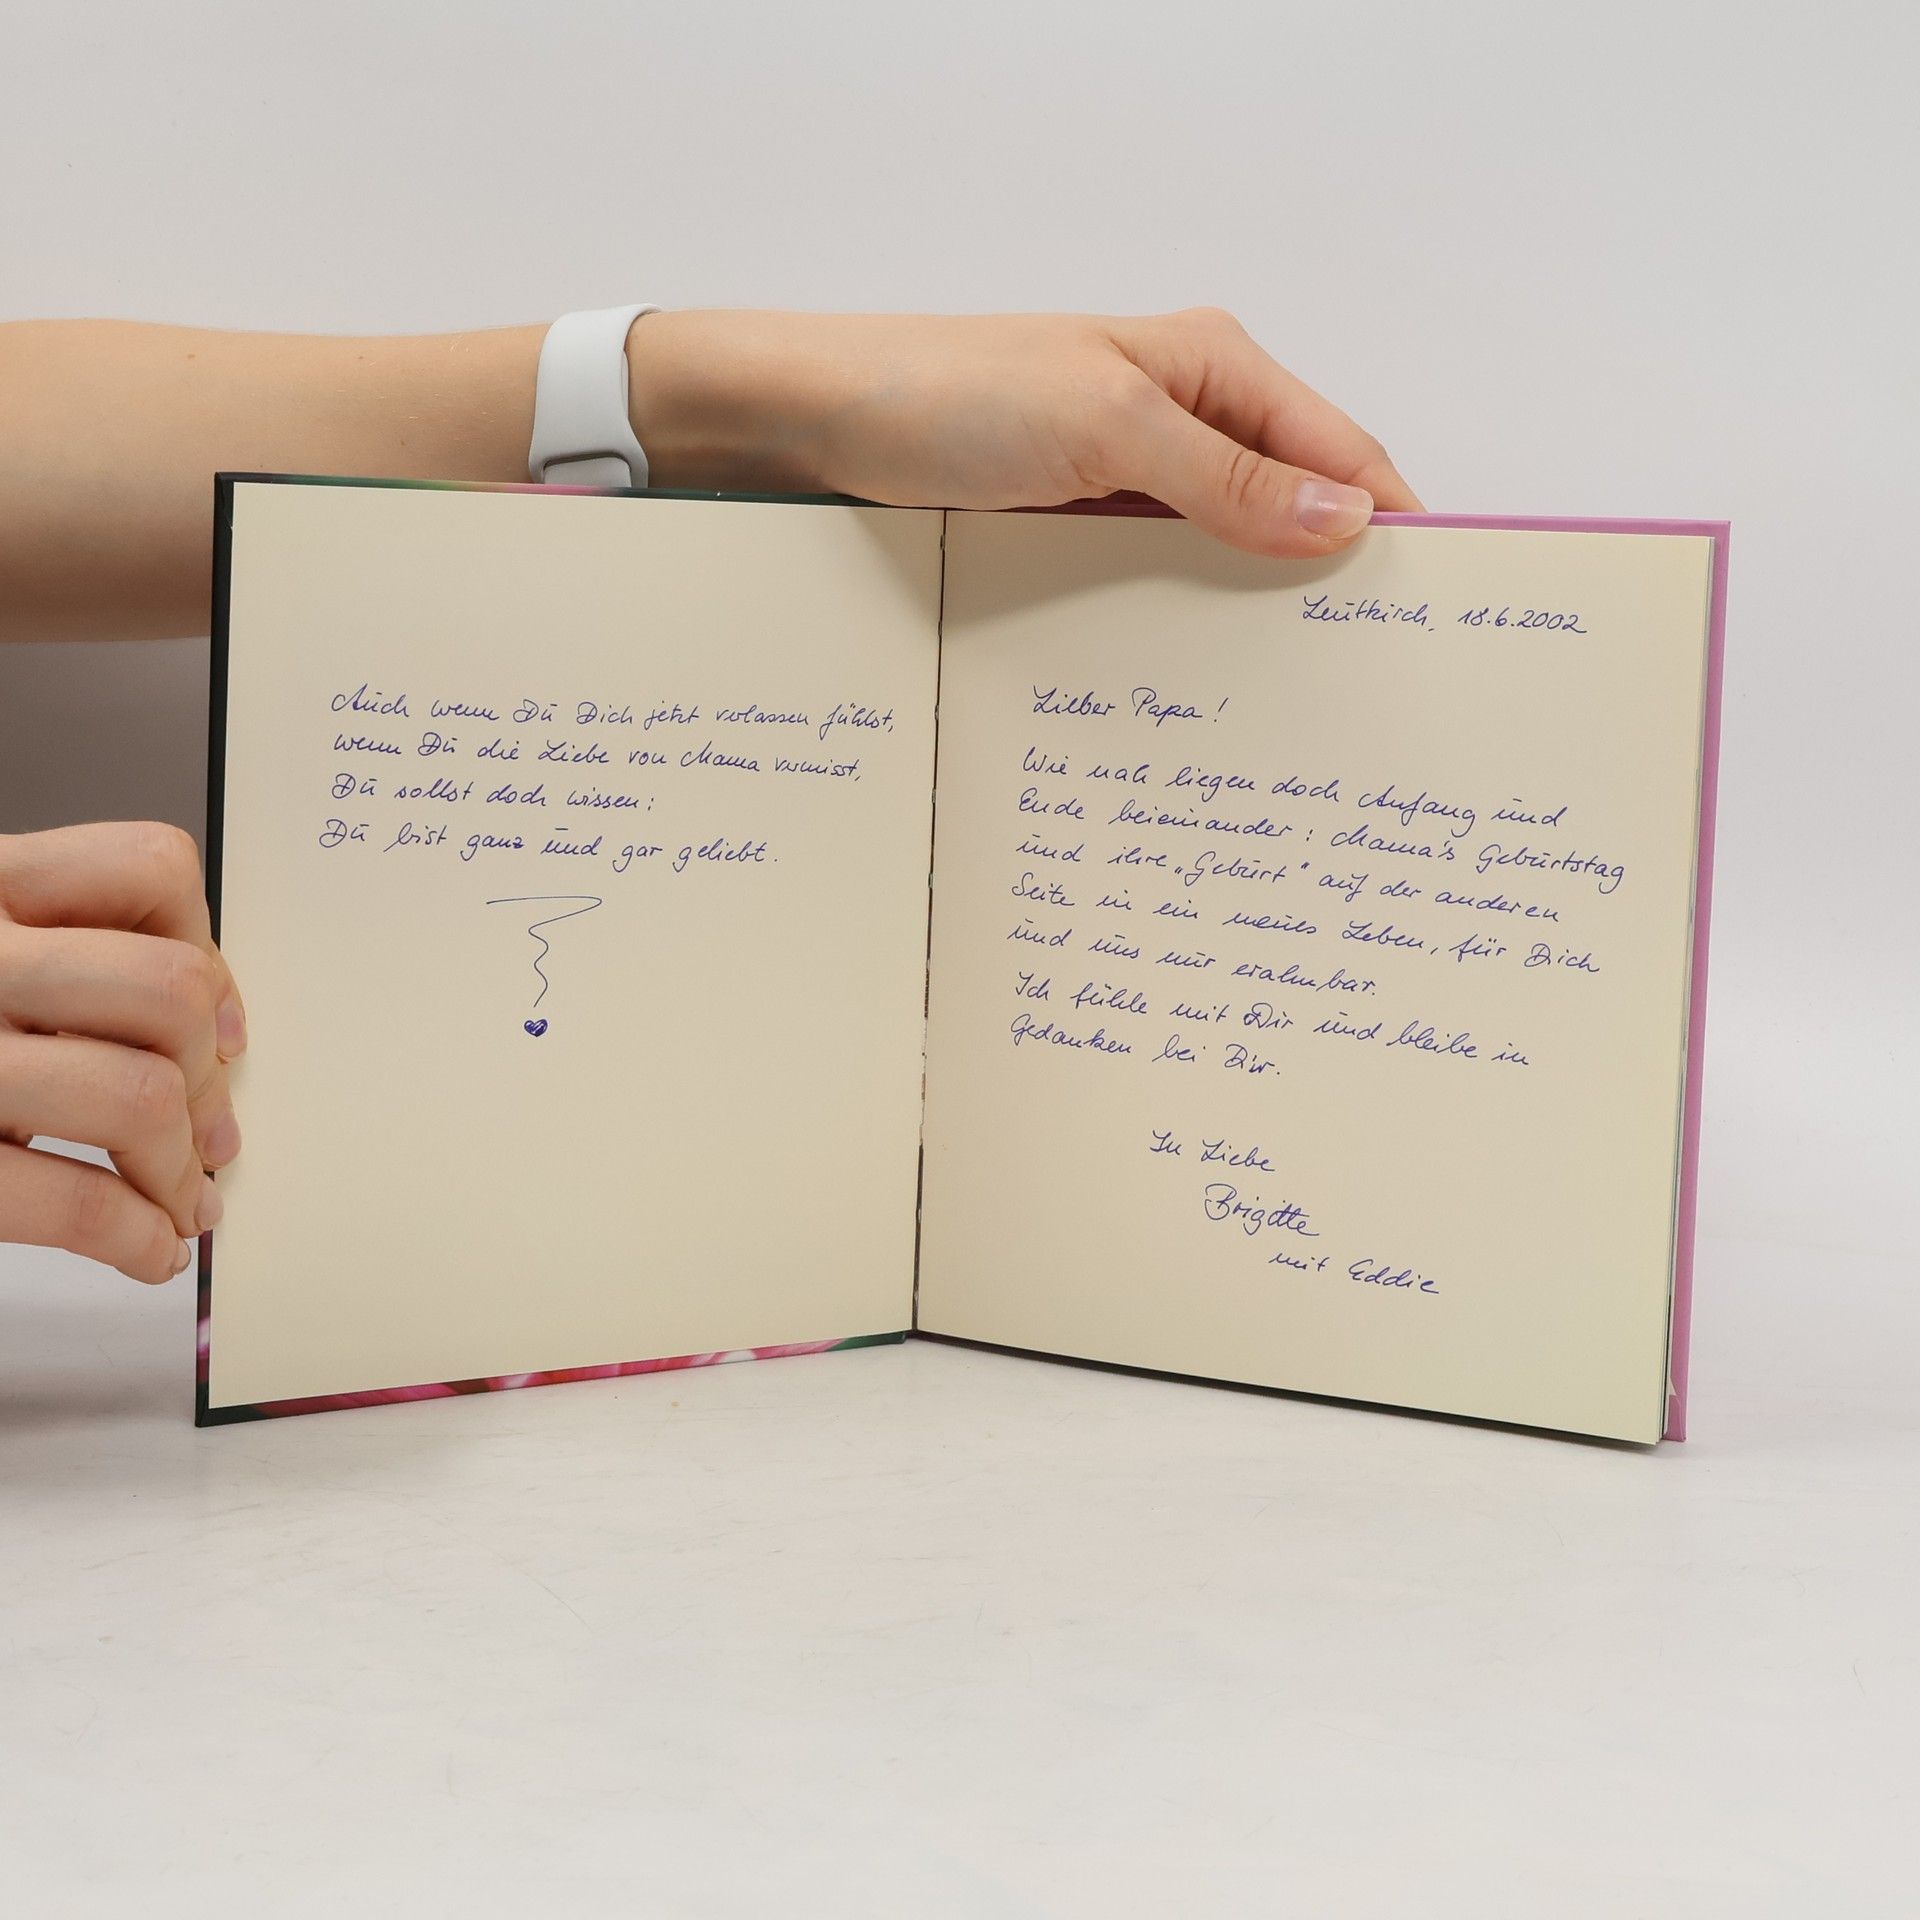 Auch wenn Du Dich jetzt verlassen fühlst,
wenn Du die Liebe von Mama vermisst,
Du sollst doch wissen:
Du bist ganz und gar geliebt.
Leutkirch, 18.6.2002
Lieber Papa!
Wie nah liegen doch Anfang und
Ende beieinander: Mama's Geburtstag
und ihre „Geburt" auf der anderen
Seite in ein neues Leben, für Dich
und uns nur erahnbar.
Ich fühle mit Dir und bleibe in
Gedanken bei Dir.
In Liebe
Brigitte
mit Eddie